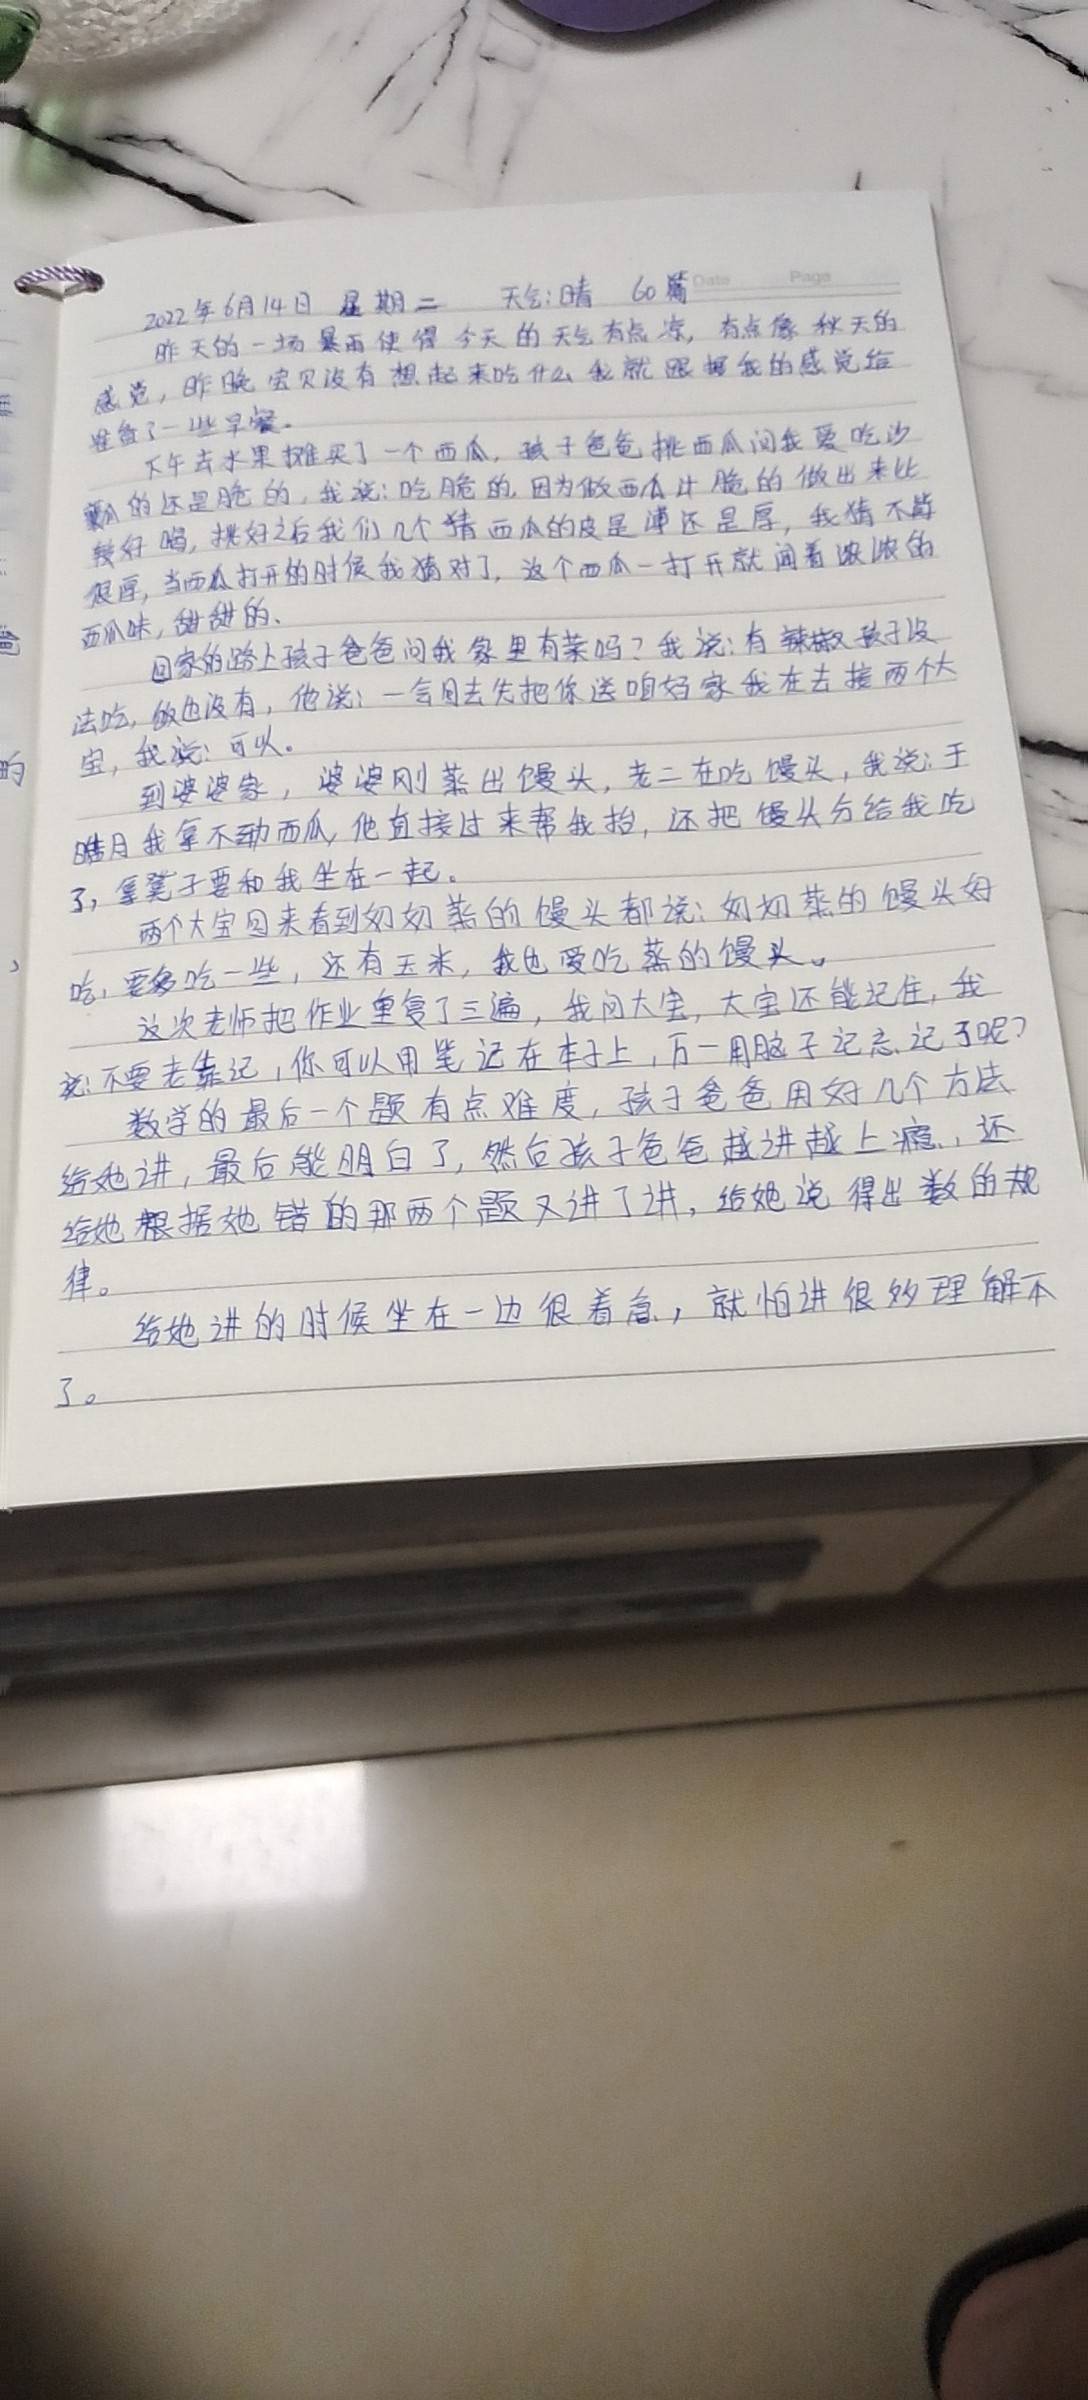 Date Page
2022年6月14日 星期二 天气:晴 60篇
昨天的一场暴雨使得今天的天气有点凉，有点像秋天的
感觉，昨晚宝贝没有想起来吃什么我就跟据我的感觉给
准备了一些早餐。
下午去水果摊买了一个西瓜，孩子爸爸挑西瓜问我爱吃沙
瓤的还是脆的，我说:吃脆的，因为做西瓜汁脆的做出来比
较好喝，挑好之后我们几个猜西瓜的皮是薄还是厚，我猜不能
很厚，当西瓜打开的时候我猜对了，这个西瓜一打开就闻着浓浓的
西瓜味，甜甜的、
回家的路上孩子爸爸问我家里有菜吗？我说:有辣椒孩子没
法吃，做也没有，他说:一会回去先把你送咱妈家我在去接两个大
宝，我说:可以。
到婆婆家，婆婆刚蒸出馒头，老二在吃馒头，我说:于
皓月我拿不动西瓜，他直接过来帮我抬，还把馒头分给我吃
了，拿凳子要和我坐在一起。
两个大宝回来看到奶奶蒸的馒头都说:奶奶蒸的馒头好
吃，要多吃一些，还有玉米，我也爱吃蒸的馒头。
这次老师把作业重复了三遍，我问大宝，大宝还能记住，我
说:不要老靠记，你可以用笔记在本子上，万一用脑子记忘记了呢？
数学的最后一个题有点难度，孩子爸爸用好几个方法
给她讲，最后能明白了，然后孩子爸爸越讲越上瘾，还
给她根据她错的那两个题又讲了讲，给她说得出数的规
律。
给她讲的时候坐在一边很着急，就怕讲很多理解不
了。
的